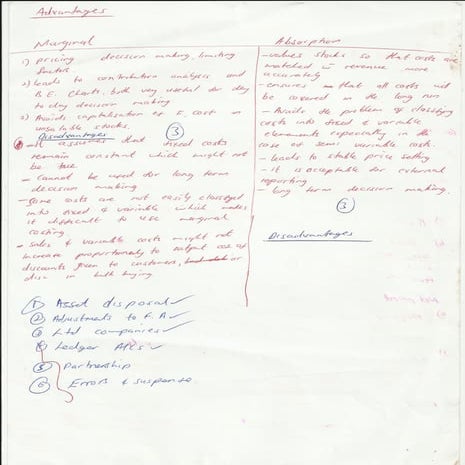 Advantages
Marginal
1) pricing decision making, limiting
factors
2) leads to contribution analysis and
B.E. Charts, both very useful for day
to day decision making
3) Avoids capitalisation of F. cost in
unsaleable stocks.
③
Disadvantages
- It assumes that fixed costs
remain constant which might not
be true
- Cannot be used for long term
decision making
- Some costs are not easily classified
into fixed & variable which makes
it difficult to use marginal
costing
- Sales & variable costs might not
increase proportionately to output cos of
discounts given to customers, or
disc in bulk buying
Absorption
- values stocks so that costs are
matched revenue more
accurately
- ensures that all costs will
be covered in the long run
- Avoids the problem of classifying
costs into fixed & variable
elements especially in the
case of semi variable costs.
- leads to stable price setting
- it is acceptable for external
reporting
- long term decision making.
③
Disadvantages
① Asset disposal ✓
② Adjustments to F.A ✓
③ Ltd companies ✓
④ Ledger A/Cs ✓
⑤ Partnership
⑥ Errors & suspense